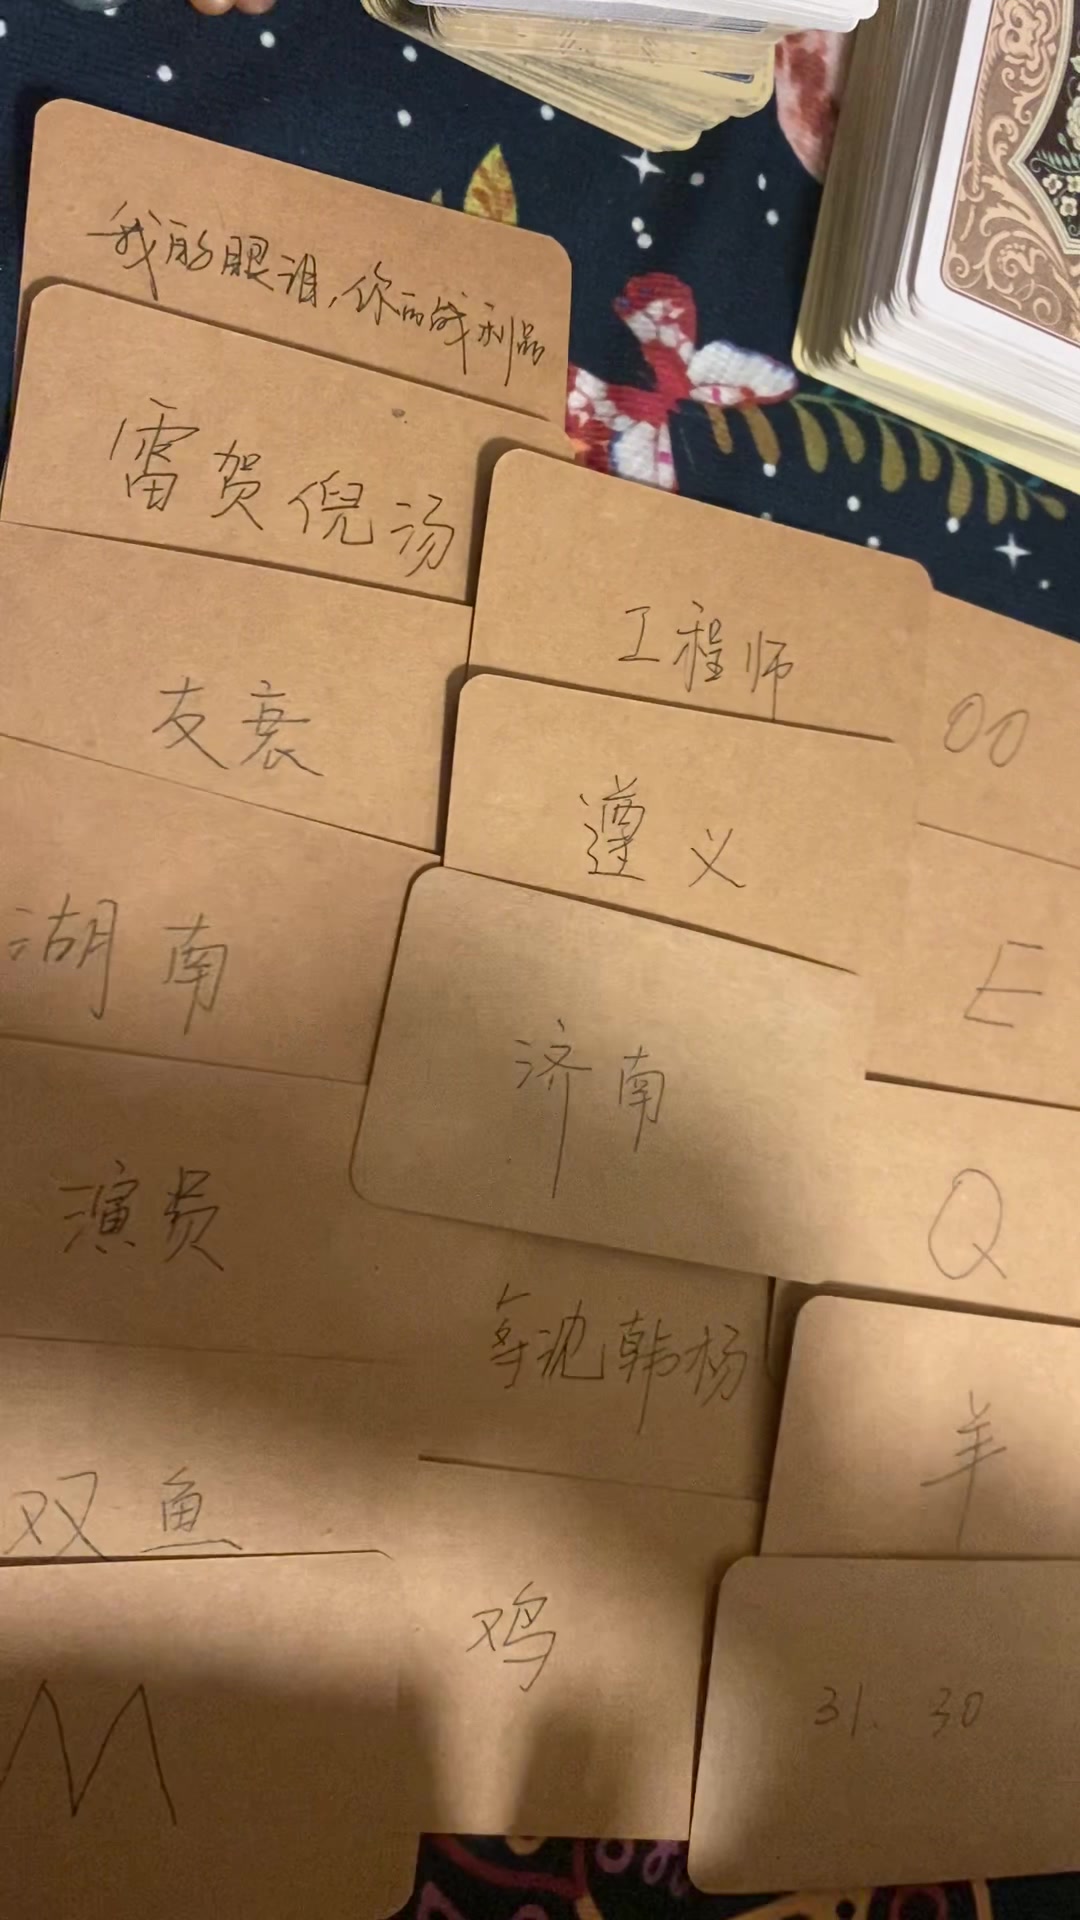 我的眼泪,你的战利品
雷贺倪汤
工程师
00
友衰
遵义
E
湖南
济南
Q
演员
韩杨
羊
双鱼
鸡
31. 30
M